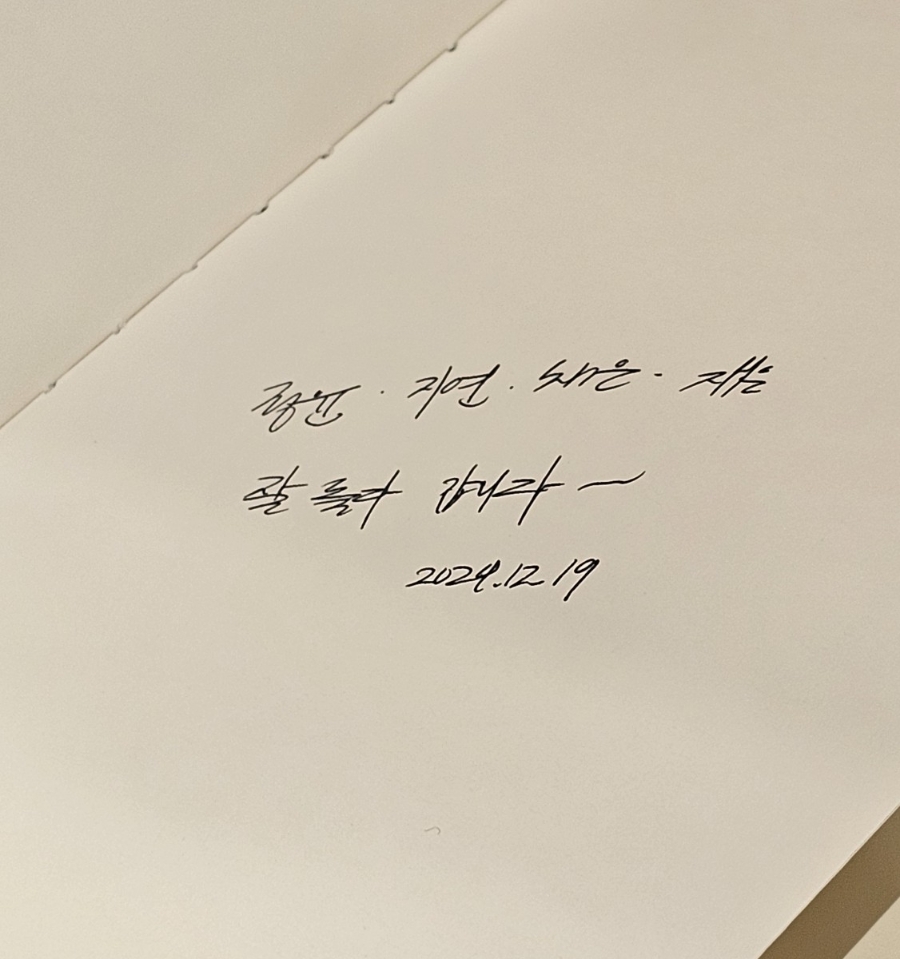 정윤 · 지연 · 채은 - 재은
잘 놀다 갑니다 ~
2024.12.19